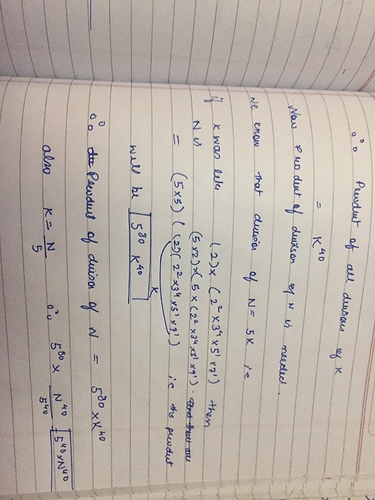 ∴ Product of all divisors of K
= K^40
Now product of divisors of N is needed.
We know that divisors of N = 5K i.e
if K was let (2) × (2^2 × 3^4 × 5^1 × 7^1) then
N is (5×2) × 5 × (2^2 × 3^4 × 5^1 × 7^1).
= (5×5) (2) (2^2 × 3^4 × 5^1 × 7^1) i.e the product
K
will be 5^80 K^40
∴ Product of divisor of N = 5^80 × K^40
also K = N/5 ∴ 5^80 × N^40/5^40 = 5^40 × N^40